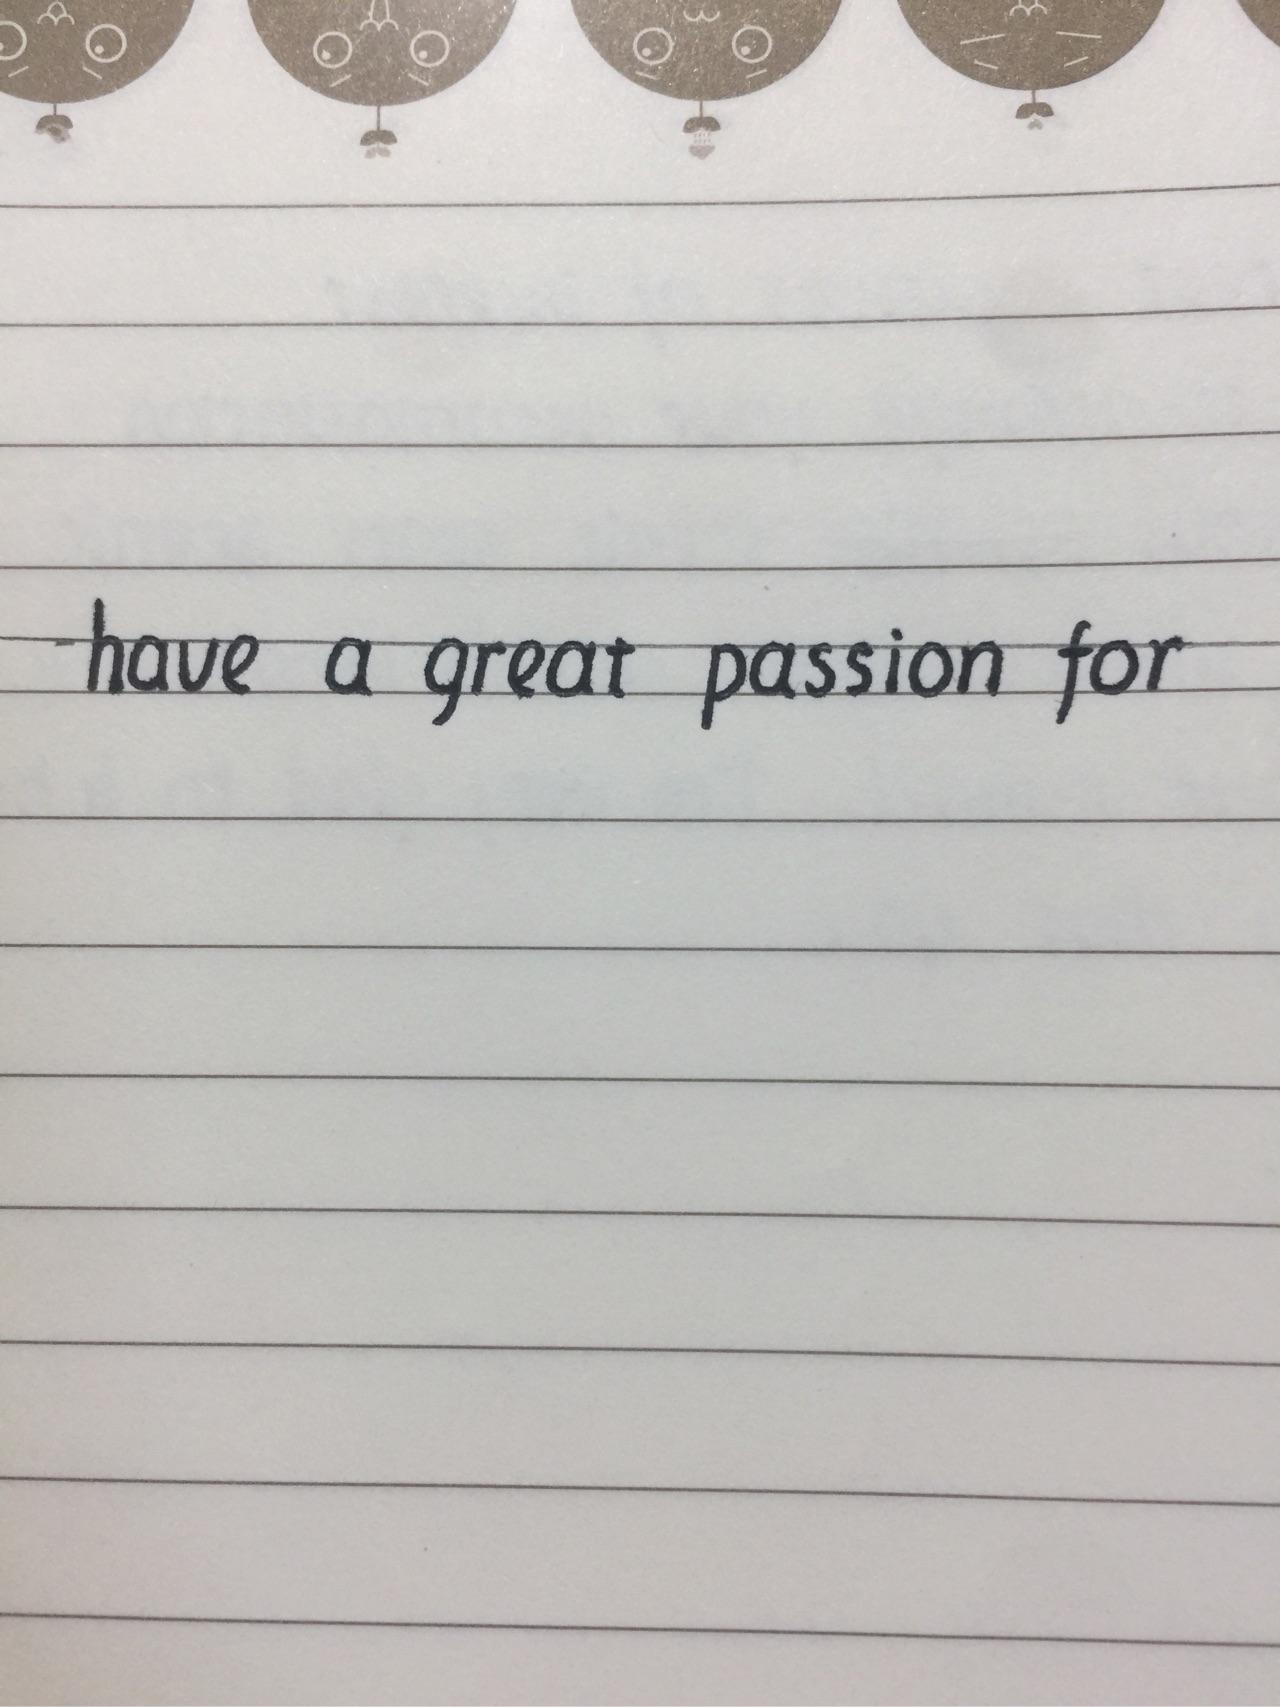 have a great passion for